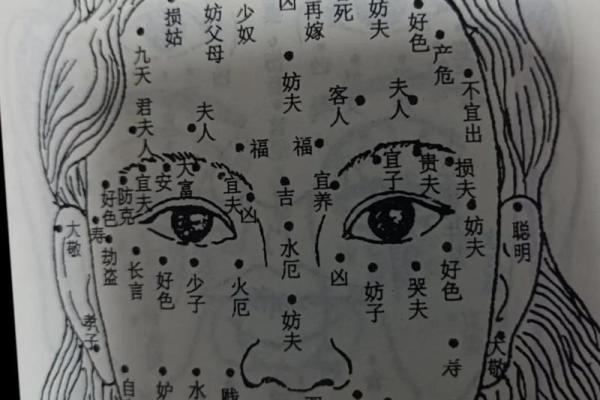 损姑
妨父母
少奴
凶
再嫁
害死
妨夫
好色
产危
九天
妨夫
客人
夫人
不宜出
君夫人
夫人
福
福
大富
安
宜夫
防克
好色
宜夫
凶
吉
宜养
宜子
贵夫
损夫
妨夫
聪明
大敬
寿
劫盗
长言
好色
少子
火厄
水厄
凶
妨子
哭夫
好色
孝子
妨夫
寿
大敬
自
妒
水
贱